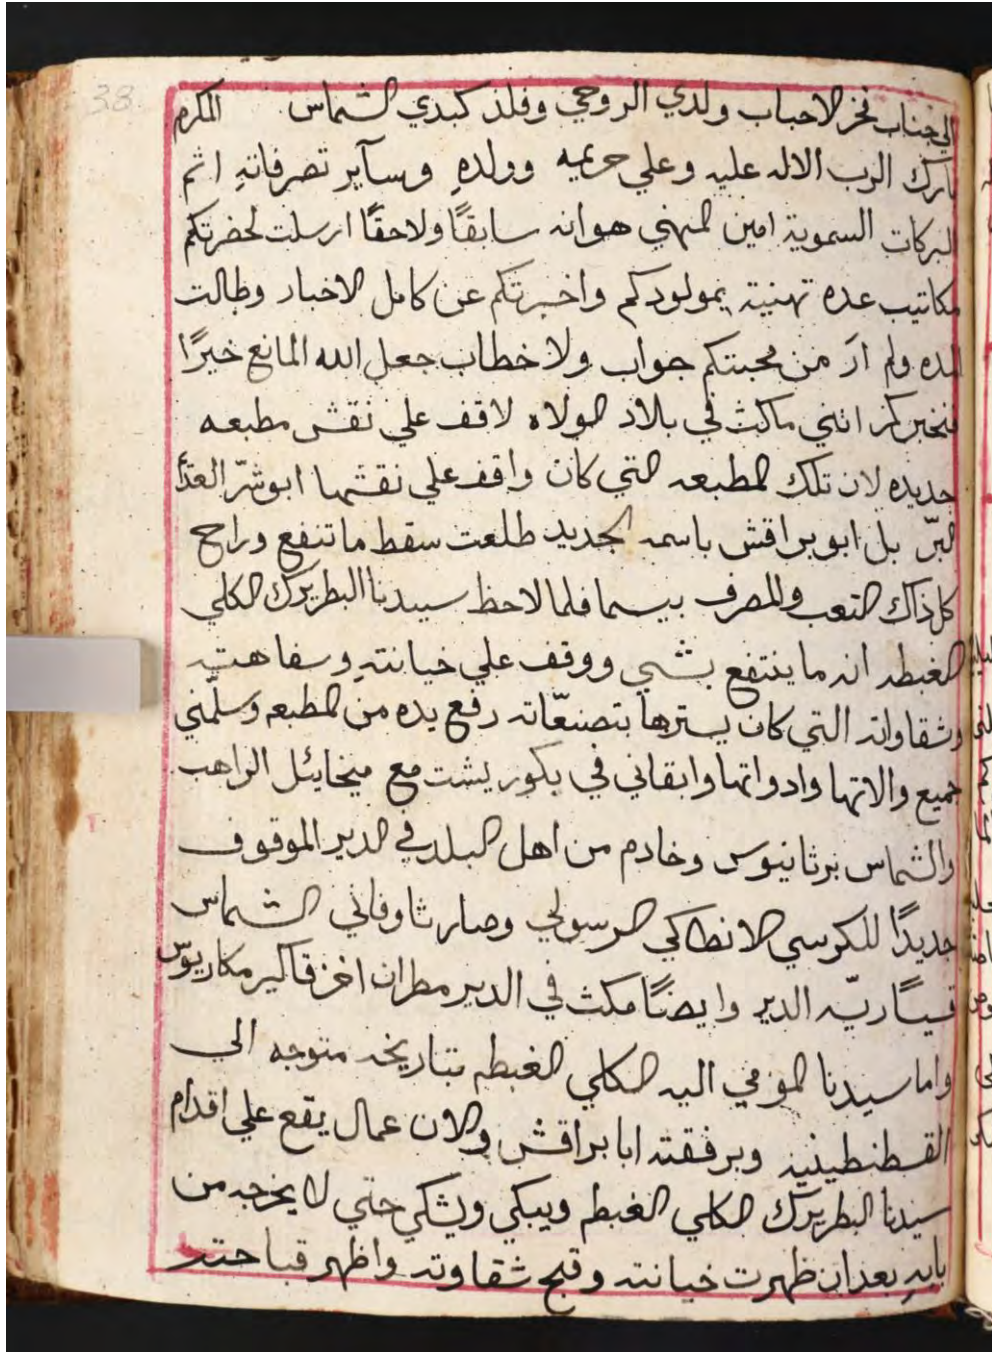 38
الي جناب فخر الاحباب ولدي الروحي وفلذ كبدي الشماس المكرم
بارك الرب الاله عليه وعلي حريمه وولدهِ وسآير تصرفاتهِ اثم
البركات السموية امين المنهي هوانه سابقًا ولاحقًا ارسلت لحضرتكم
مكاتيب عده تهنية بمولودكم واخبرتكم عن كامل الاخبار وطالت
المده ولم ارَ من محبتكم جواب ولا خطاب جعل الله المانع خيرًا
فنخبركم انني ماكث في بلاد الولاه لاقف علي نقش مطبعه
جديده لان تلك المطبعه التي كان واقف علي نقشها ابو شرّ
البرّ بل ابو براقش باسمه الجديد طلعت سقط ما تنفع وراح
كل ذاك التعب والمصرف بيسما فلما لاحظ سيدنا البطريرك الكلي
الغبطه انه ما ينتفع بشي ووقف علي خيانتهِ وسفاهته
وشقاواته التي كان يسترها بتصنعّاته رفع يده من المطبعه وسلّمني
جميع والاتها وادواتها وابقاني في بكوريشت مع ميخايئل الراهب
والشماس برثانيوس وخادم من اهل البلد في الدير الموقوف
جديدًا للكرسي الانطاكي الرسولي وصار ثاوفاني الشماس
قسيسًا ريّه الدير وايضًا مكث في الدير مطران اغز قاكير مكاريوس
واما سيدنا المومي اليه الكلي الغبطه بتاريخه متوجه الي
القسطنطينيه وبرفقته ابا براقش والان عمال يقع علي اقدام
سيدنا البطريرك الكلي الغبطه ويبكي ويشكي حتي لا يخرجه من
بابهِ بعد ان ظهرت خيانته وقبح شقاوته واظهر قباحته